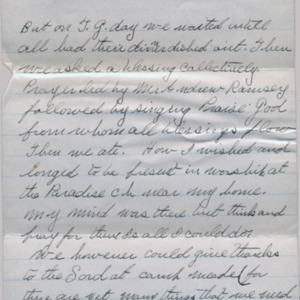 But on T. G. day we waited until
all had their diner dished out. Then
we asked a blessing collectively.
Prayer led by Mr. Andrew Ramsey
followed by singing Praise God
from whom all blessings flow
Then we ate. How I wished and
longed to be present in worship at
the Paradise ch. near my home.
My mind was there but think and
pray for them is all I could do.
We however could give thanks
to the Lord at camp meade for
there are yet many things that we need